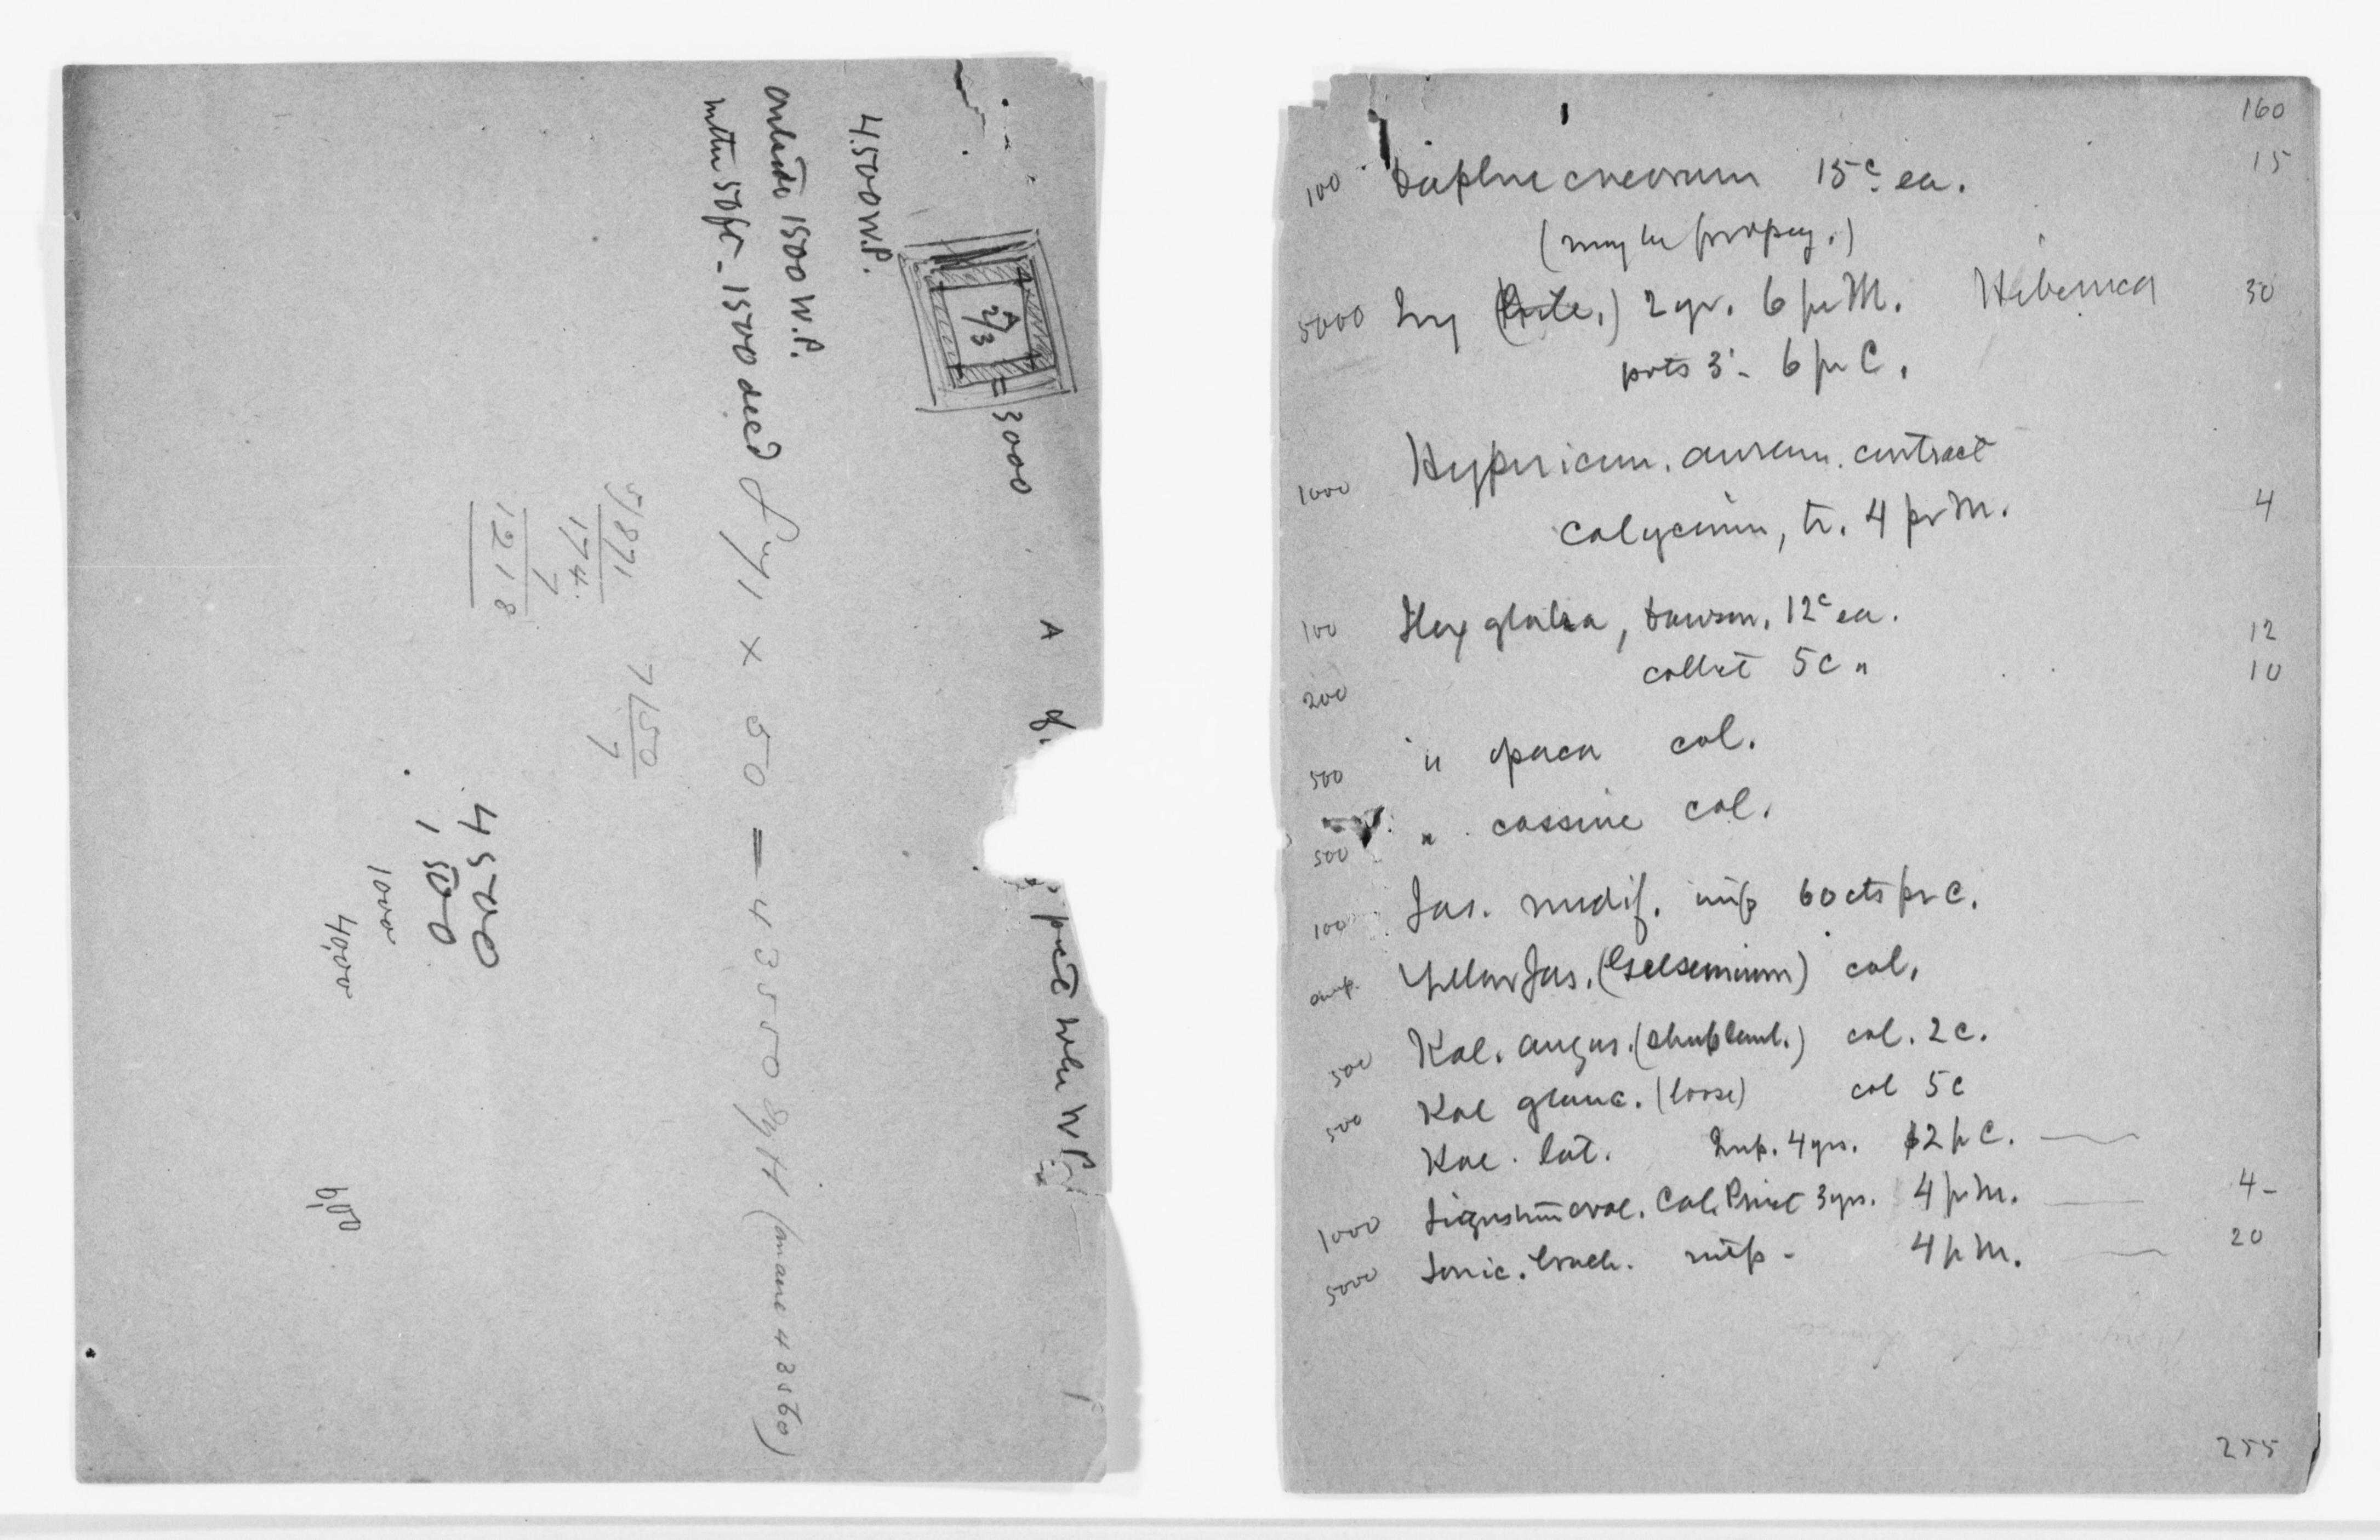 4.500 W.P.
outside 1500 W.P.
50 ft - 1500 deed
2/3
A
= 3000
A
871 x 50 = 43550 sq ft (an acre 43560)
5/871
174
7
1218
7/50
7
4500
1,500
1000
4,000
600
W.P.
160
100 Daphne cneorum 15c ea. 15
(may be propag.)
5000 Ivy 2 yr. 6 pr M. Hibernica 30
pots 3" - 6 pr C.
1000 Hypericum. aureum. contract
calycinum, tr. 4 pr M. 4
100 Ilex glabra, Dawson, 12c ea. 12
200 collect 5c " 10
500 " opaca col.
500 " cassine col.
100 Jas. nudif. imp 60 cts pr C.
Yellow Jas. (Gelsemium) col.
500 Kal. angus. (sheep laurel.) col. 2 c.
500 Kal glauc. (loose) col 5c
Kal. lat. Imp. 4 yrs. $2 p C.
1000 Ligustrum oval. Cal. Privet 3 yrs. 4 p M. 4-
5000 Lonic. brach. imp - 4 p M. 20
255